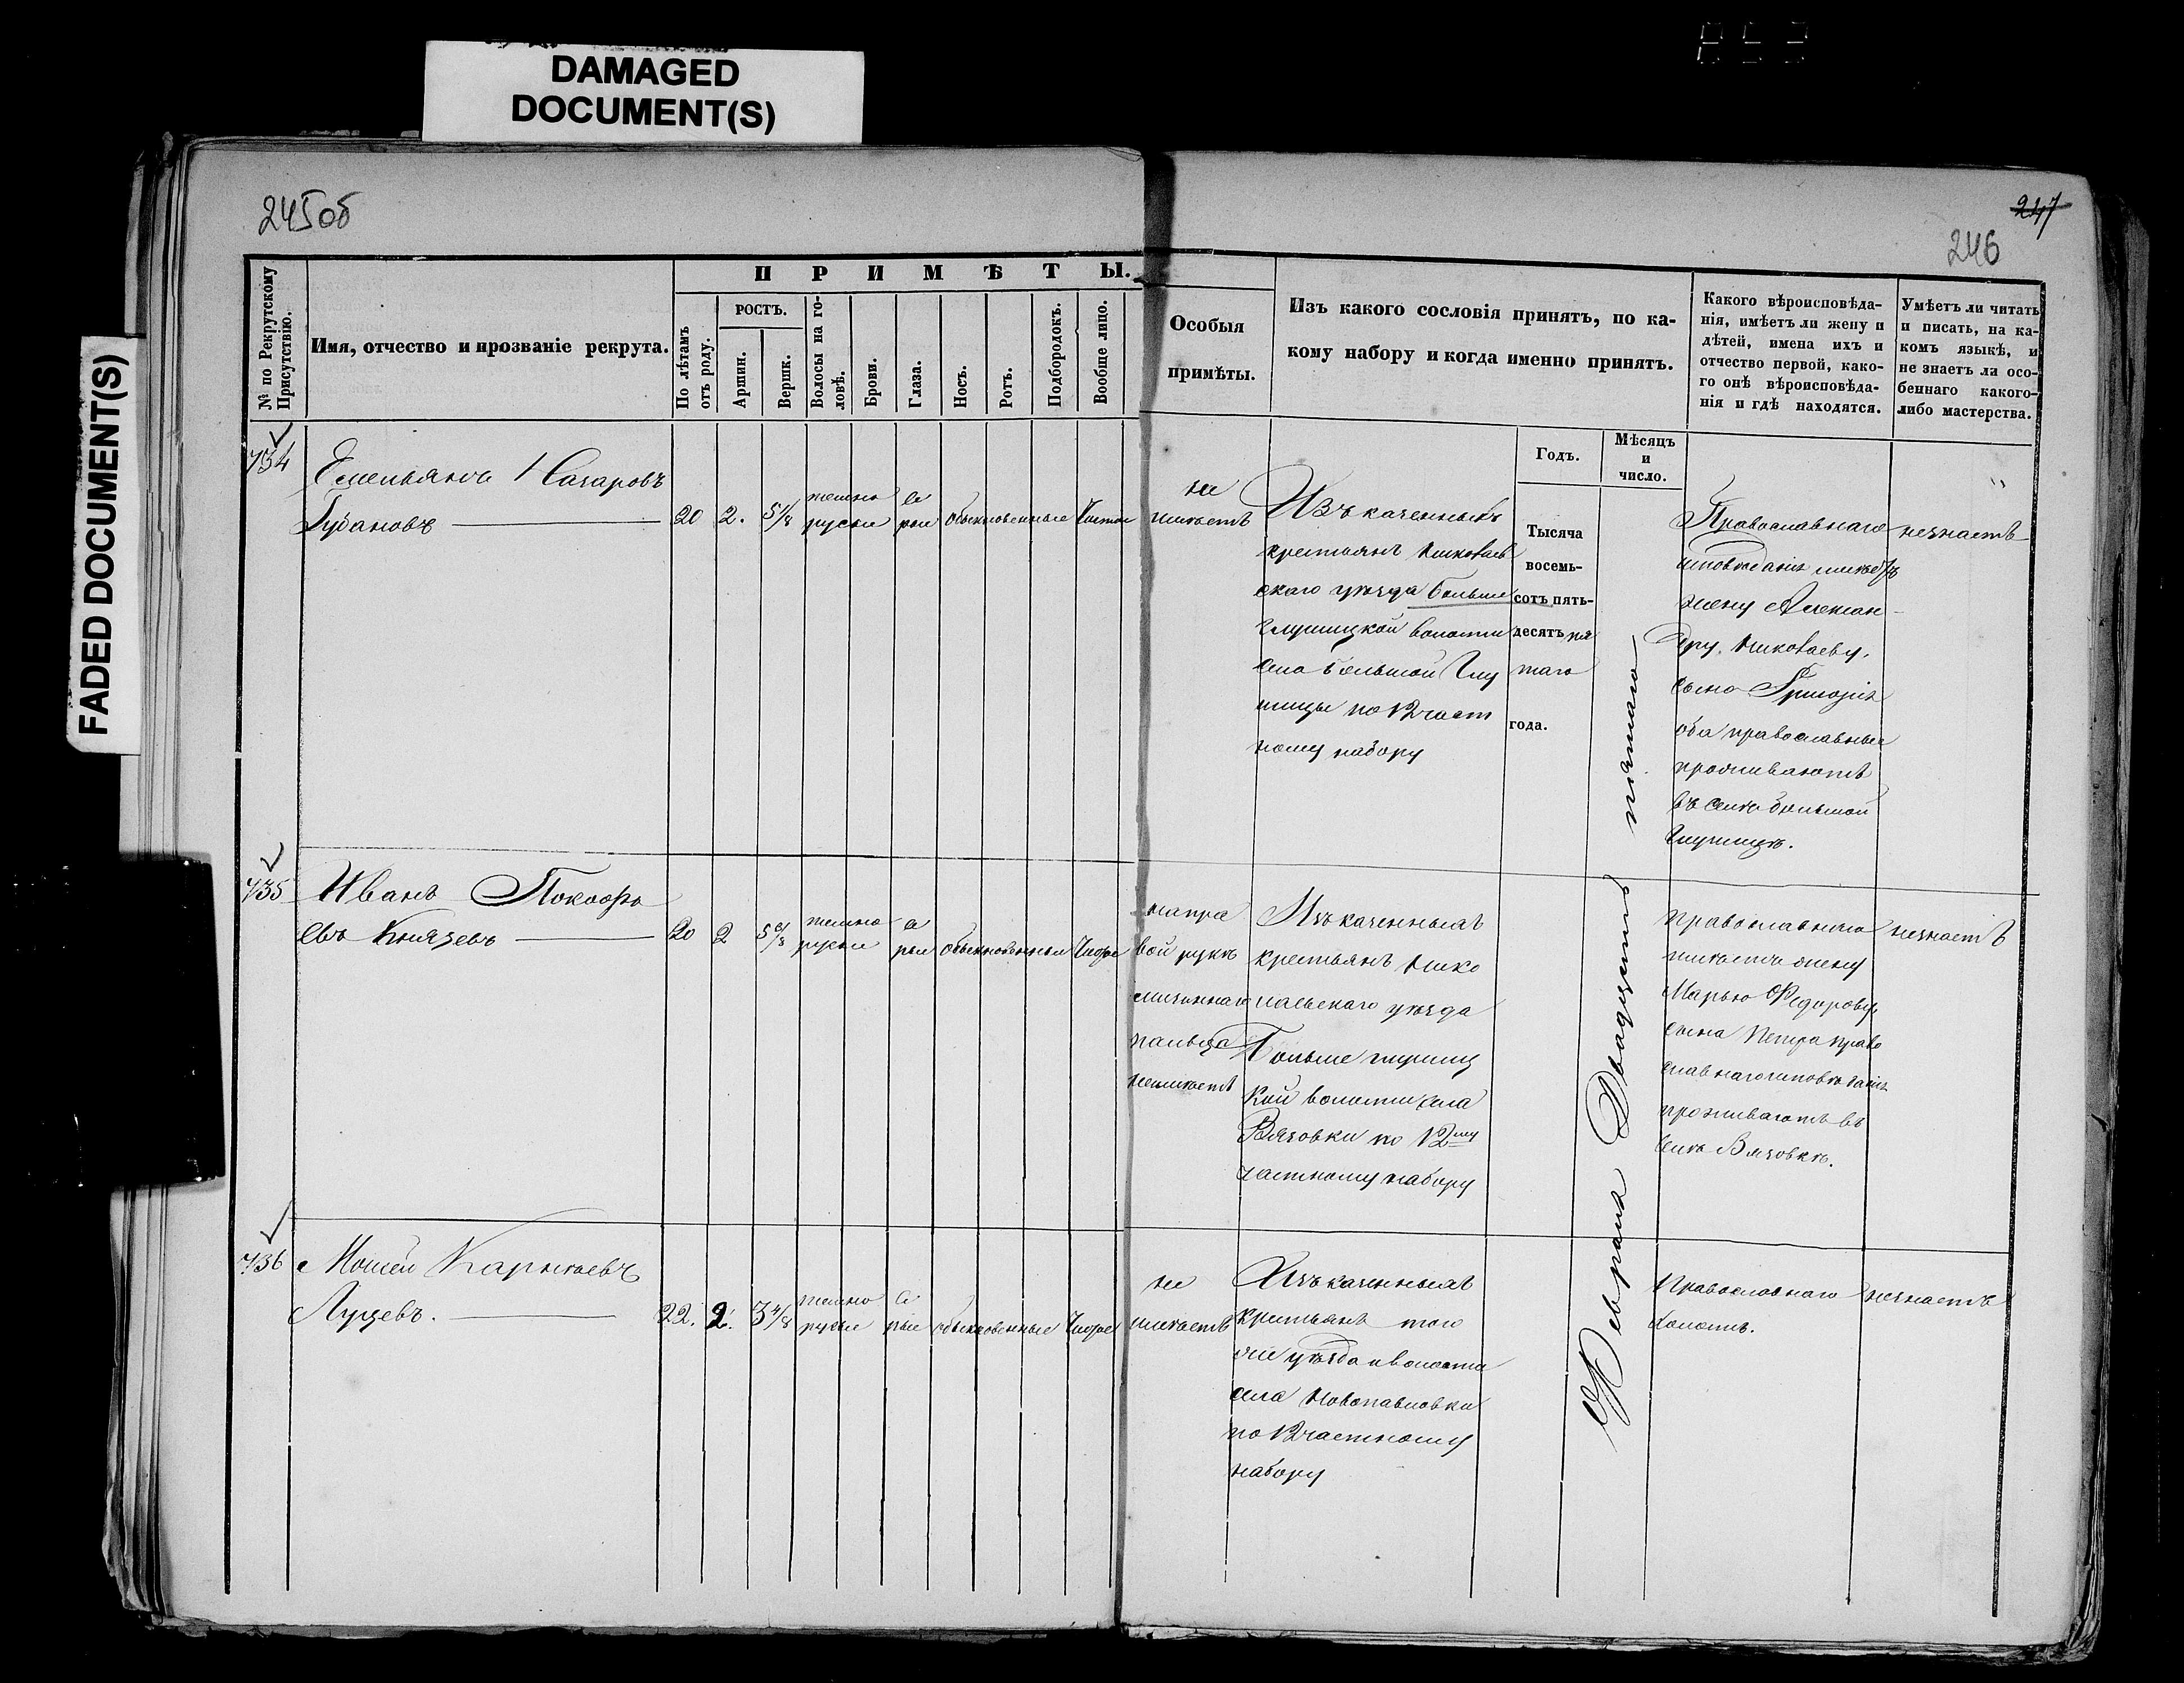 DAMAGED
DOCUMENT(S)
FADED DOCUMENT(S)
245об
247
246
№ по Рекрутскому
Присутствію.
Имя, отчество и прозваніе рекрута.
ПРИМѢТЫ.
По лѣтамъ
отъ роду.
РОСТЪ.
Аршин.
Вершк.
Волосы на го-
ловѣ.
Брови.
Глаза.
Носъ.
Ротъ.
Подбородокъ.
Вообще лицо.
Особыя
примѣты.
Изъ какого сословія принятъ, по ка-
кому набору и когда именно принятъ.
Какого вѣроисповѣда-
нія, имѣетъ ли жену и
дѣтей, имена ихъ и
отчество первой, како-
го онѣ вѣроисповѣда-
нія и гдѣ находятся.
Умѣетъ ли читать
и писать, на ка-
комъ языкѣ, и
не знаетъ ли осо-
беннаго какого-
либо мастерства.
Годъ.
Мѣсяцъ
и
число.
Тысяча
восемь-
сотъ пять-
десятъ пя
таго
года.
Февраля Двадцать пятаго
734
Емельянъ Назаровъ
Губановъ
20 2. 5 1/8 темно русые сѣ рые обыкновенные чистое
не
имѣетъ
Изъ казенныхъ
крестьянъ Николаев
скаго уѣзда больше
глушицкой волости
села большой Глу
шицы по 12 част
ному набору
Православнаго
исповѣданія имѣетъ
жену Алексан-
дру Николаеву,
сына Григорія
оба православные
проживаютъ
въ селѣ большой
глушицѣ.
незнаетъ
735
Иванъ
евъ Князевъ
20 2 5 темно русые сѣ рые обыкновенные
направой рукѣ
мизиннаго
пальца
неимѣетъ
Изъ казенныхъ
крестьянъ Нико
лаевскаго уѣзда
Больше глушиц
кой волости села
Вязовки по 12му
частному набору
Православнаго
имѣетъ жену
Марью Федорову
сына Петра право
славнаго исповѣданія
проживаютъ въ
селѣ Вязовкѣ.
незнаетъ
736
Мосей Карнѣевъ
Луцевъ.
22. 2. 3 4/8 темно русые сѣ рые обыкновенные
не
имѣетъ
Изъ казенныхъ
крестьянъ того
же уѣзда и волости
села Новопавловки
по 12 частному
набору
Православнаго
холостъ.
незнаетъ